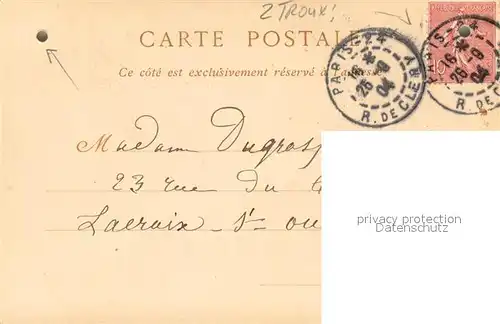 2 TROUX!
CARTE POSTALE
Ce côté est exclusivement réservé à l'adresse
PARIS 24
16 * 26 -9 04
R. DE CLERY
PARIS 24
16 * 26 -9 04
R. DE CLERY
Madame Dugross
23 rue du
Lacroix - St - ou
privacy protection
Datenschutz